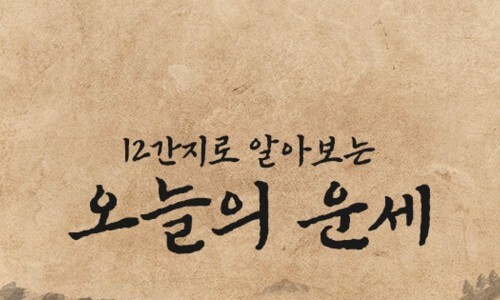 12간지로 알아보는
오늘의 운세